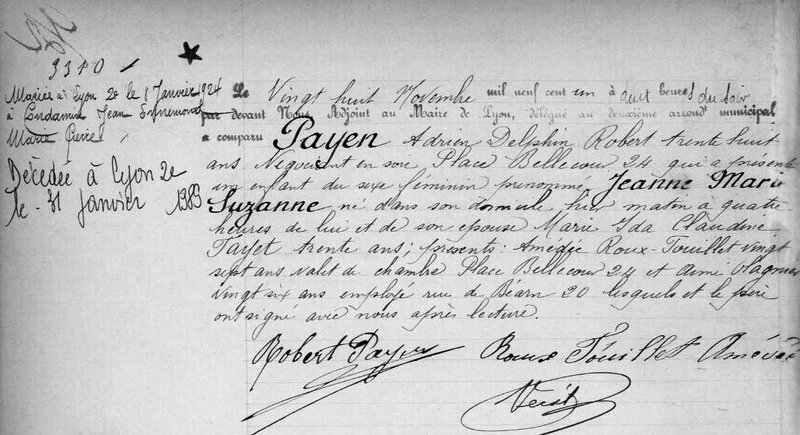 3310
Mariée à Lyon 2e le 8 Janvier 1924
à Condamin Jean Ennemond
Marie Pierre
Décédée à Lyon 2e
le 31 janvier 1989
Le Vingt huit Novembre mil neuf cent un à deux heures du soir
par devant Nous Adjoint au Maire de Lyon, délégué au deuxième arrondt municipal
a comparu Payen Adrien Delphin Robert trente huit
ans Négociant en soie Place Bellecour 24 qui a présenté
un enfant du sexe féminin prénommé Jeanne Marie
Suzanne né dans son domicile hier matin à quatre
heures de lui et de son épouse Marie Ida Claudine
Payet trente ans; présents: Amédée Roux-Touillet vingt
sept ans valet de chambre Place Bellecour 24 et Aimé
vingt six ans employé rue de Béarn 20 lesquels et le père
ont signé avec nous après lecture.
Robert Payen Roux Touillet Amédée